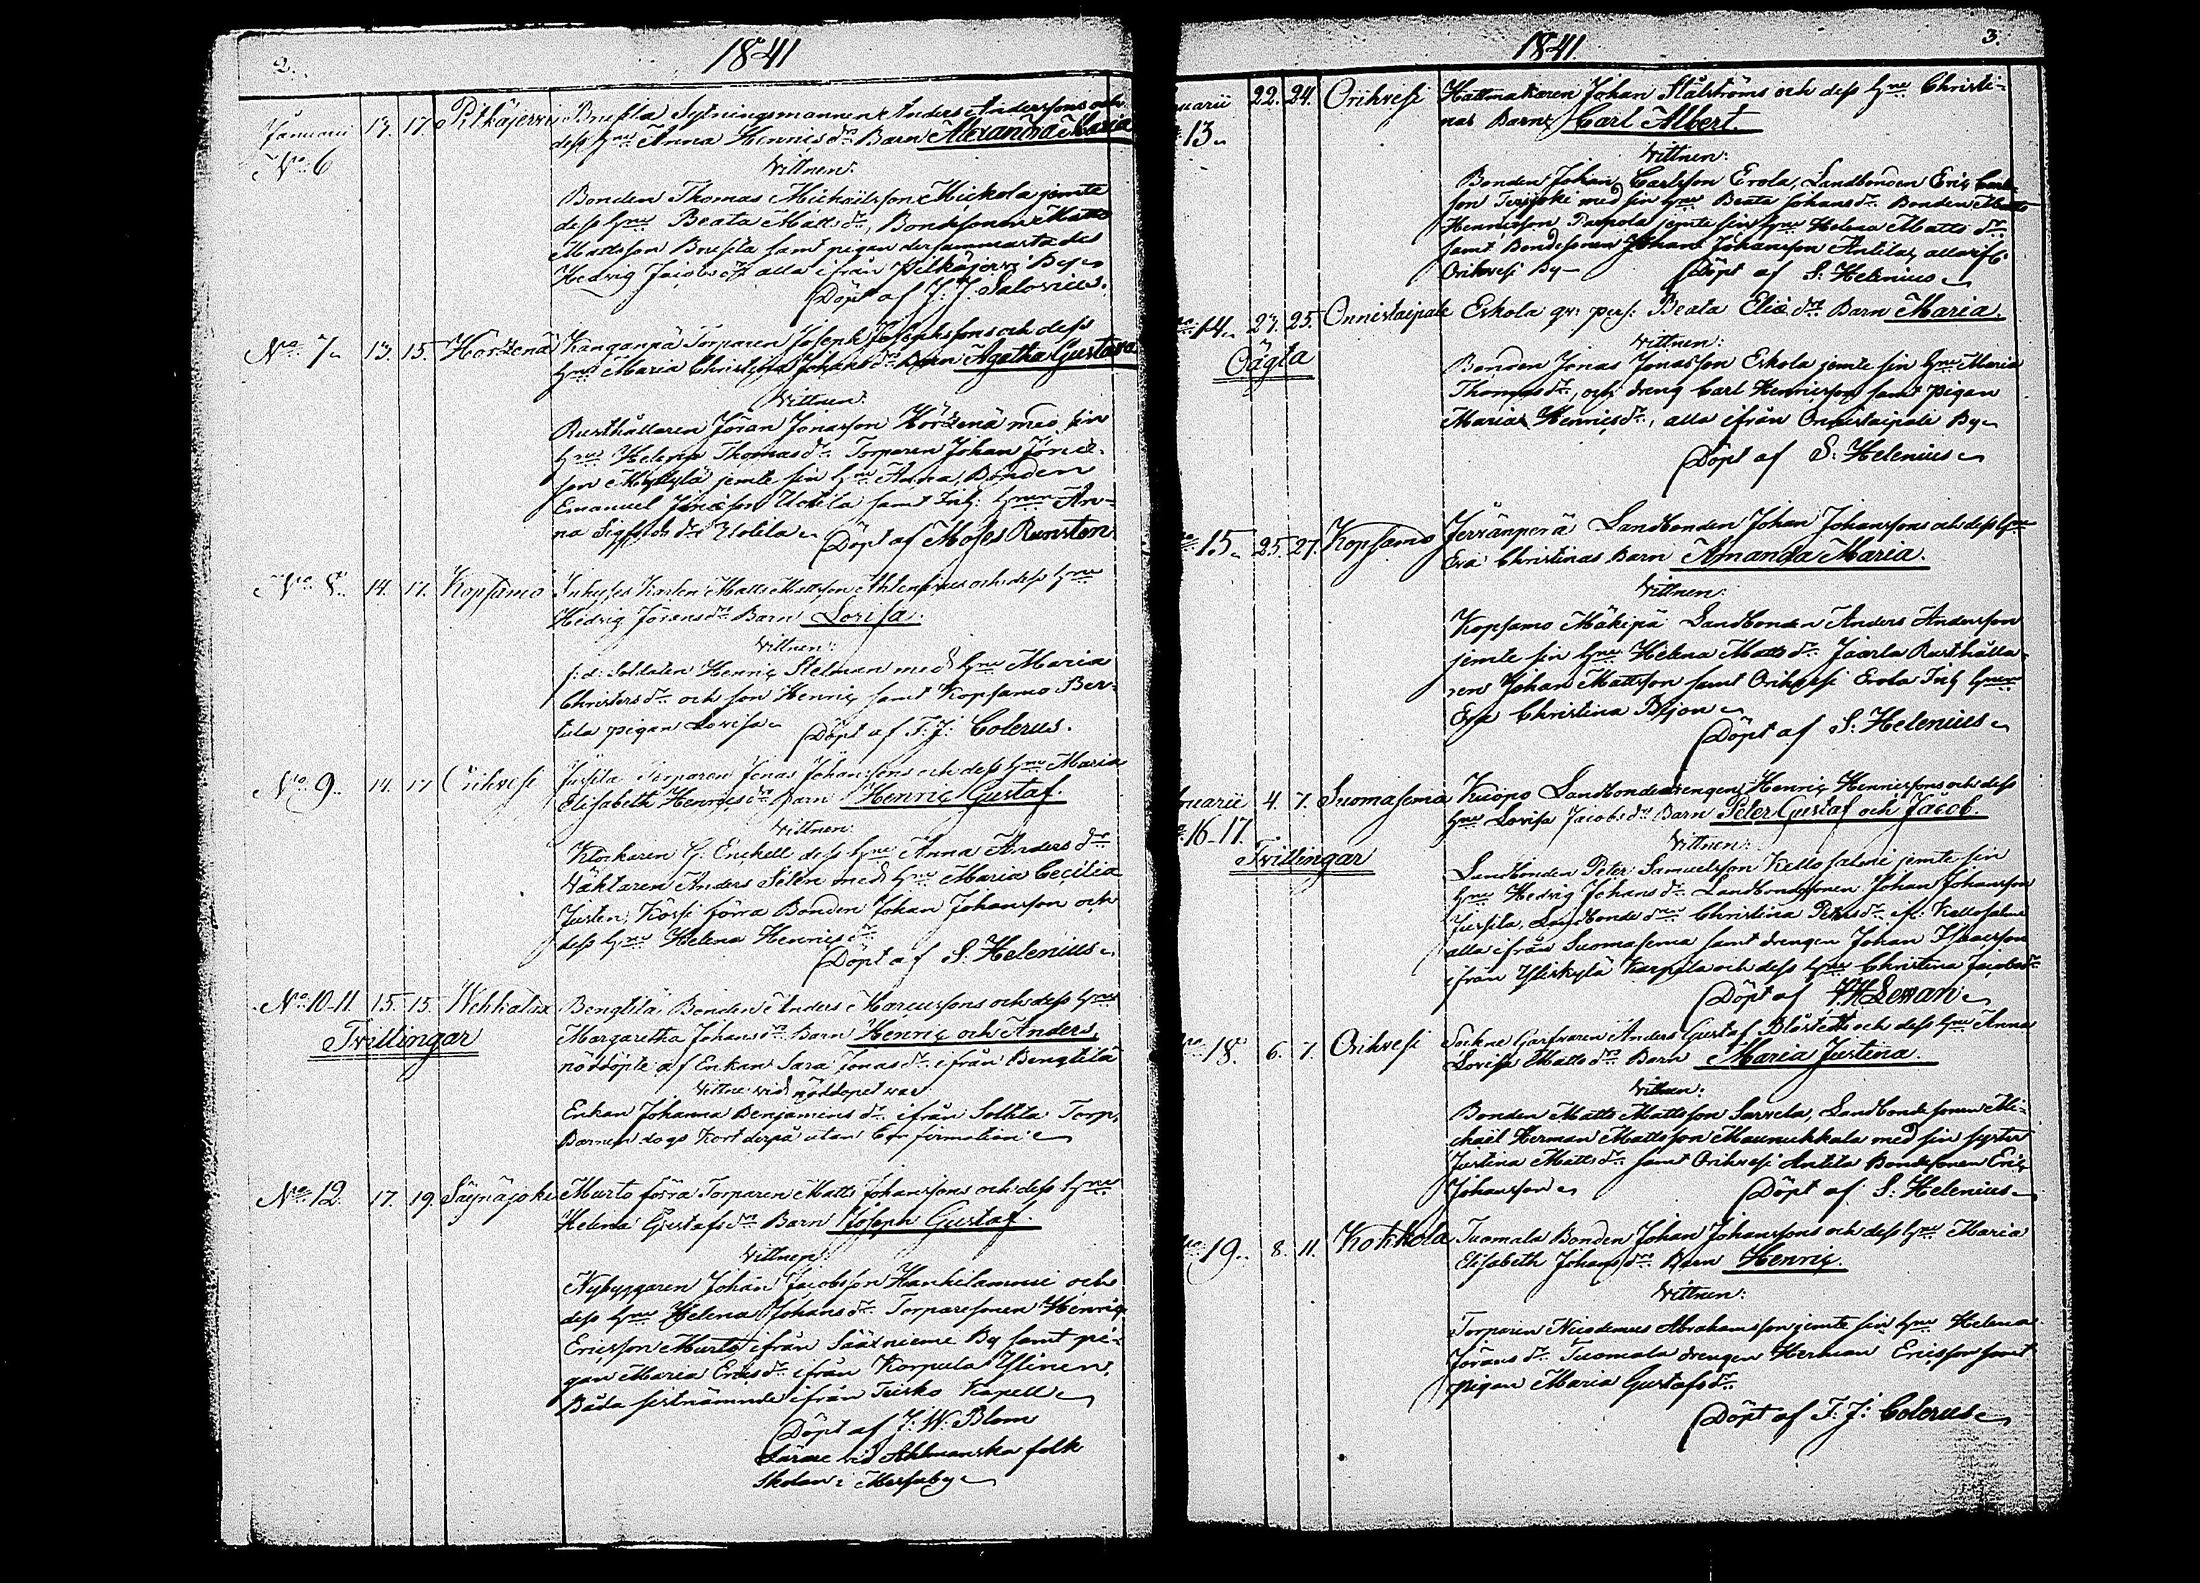 2.
1841
Januari 13. 17. Pitkäjerwi Brusila Sytningsmannen Anders Anderssons och
No 6 dess Hru Anna Henricsdrs Barn Alexandra Maria
Vittnen:
Bonden Thomas Michaëlsson Mickola jemte
dess Hru Beata Mattsdr, Bondesonen Matts
Mattsson Brusila samt pigan dersammastädes
Hedvig Jacobsdr alla ifrån Pitkäjerwi By
Döpt af J. J. Salovius.
No 7 13. 15. Kanganpä Torparen Joseph Josephssons och dess
Hru Maria Christina Johansdrs Barn Agatha Gustava
Vittnen:
Rusthållaren Jöran Jonasson med sin
Hru Helena Thomasdr Torparen Johan
son jemte sin Hru Anna, Bonden
Emanuel samt Inh: Hrun An-
na Sigfridsdr Uotila Döpt af Moses Runsten
No 8. 14. 17. Kopsamo Inhyses Karlen Matts Mattsson och dess Hru
Hedvig Jöransdrs Barn Lovisa.
Vittnen:
f: d: Soldaten Henric Stelman med Hru Maria
Christersdr och son Henric samt Kopsamo Ber-
tula pigan Lovisa
Döpt af F: J: Colerus.
No 9. 14. 17 Orihvesi Jussila Torparen Jonas Johanssons och dess Hru Maria
Elisabeth Henricsdrs Barn Henric Gustaf.
Vittnen:
Klockaren G. Enckell dess Hru Anna Andersdr
Väktaren Anders Selén med Hru Maria Cecilia
Justen, förra Bonden Johan Johansson och
dess Hru Helena Henricsdr
Döpt af S: Helenius
No 10-11 15. 15. Wehkalax Bengtilä Bonden Anders Marcussons och dess Hru
Margaretha Johansdrs Barn Henric och Anders,
Tvillingar
nöddöpte af Enkan Sara Jonasdr ifrån Bengtilä
Vittne vid nöddopet var
Enkan Johanna Benjaminsdr ifrån Torp,
Barnen dogo kort derpå utan Confirmation
No 12. 17. 19. Säynäjoki Murto förra Torparen Matts Johanssons och dess Hru
Helena Gustafsdrs Barn Joseph Gustaf.
Vittnen:
Nybyggaren Johan Jacobsson Hankilammi och
dess Hru Helena Johansdr Torparesonen Henric
Ericsson Murto ifrån By samt pi-
gan Maria Ericsdr ifrån Korpula Ylinen,
Båda sistnämnde ifrån Teisko Kapell
Döpt af J. W. Blom
Lärare vid Ahlmanska folk
Skolan i Messuby
3.
1841.
uarii 22. 24. Orihvesi Hattmakaren Johan Stålströms och dess Hru Christi-
13 nas Barn Carl Albert.
Vittnen:
Bonden Johan Carlsson Erola, Landbonden Eric Carls-
son med sin Hru Beata Johansdr Bonden Matts
Henricsson Papola jemte sin Hru Helena Mattsdr
samt Bondesonen Johan Johansson Antila, alla ifr:
Orihvesi By
Döpt af S: Helenius
14 23. 25. Onnistaipale Eskola qv: pers: Beata Eliædrs Barn Maria.
Oägta
Vittnen:
Bonden Jonas Jonasson Eskola jemte sin Hru Maria
Thomasdr, och dreng Carl Henricsson samt pigan
Maria Henricsdr, alla ifrån Onnistaipale By
Döpt af S: Helenius
15 25. 27. Kopsamo Jervänperä Landbonden Johan Johanssons och dess Hru
Eva Christinas Barn Amanda Maria.
Vittnen:
Kopsamo Mäkipä Landbonden Anders Andersson
jemte sin Hru Helena Mattsdr Jaarla Rusthålla-
ren Johan Mattsson samt Orihvesi Erola Inh Hrun
Eva Christina Björn
Döpt af S: Helenius
ruarii 4. 7. Suomasema Kuopo Landbondedrengen Henric Henricssons och dess
16-17. Hru Lovisa Jacobsdrs Barn Peter Gustaf och Jacob.
Tvillingar
Vittnen:
Landbonden Peter Samuelsson Kellosalmi jemte sin
Hru Hedvig Johansdr Landbondesonen Johan Johansson
Jussila, Landbonde drn Christina Petersdr ifr: Kellosalmi
alla ifrån Suomasema samt drengen Johan Isaacsson
ifrån Yliskylä Karppila och dess Hru Christina Jacobsdr
Döpt af
18. 6. 7. Orihvesi Sockne Garfvaren Anders Gustaf Blåstedts och dess Hru Anna
Lovisa Mattsdrs Barn Maria Justina.
Vittnen:
Bonden Matts Mattsson Sarvela, Landbonde sonen Mi-
chaël Herman Mattsson Maunukkala med sin syster
Justina Mattsdr samt Orihvesi Antila Bondesonen Eric
Johansson
Döpt af S: Helenius
19. 8. 11. Kokkola Tuomala Bonden Johan Johanssons och dess Hru Maria
Elisabeth Johansdrs Barn Henric.
Vittnen:
Torparen Nicodemus Abrahamsson jemte sin Hru Helena
Jöransdr Tuomala drengen Herman Ericsson samt
pigan Maria Gustafsdr
Döpt af F: J: Colerus